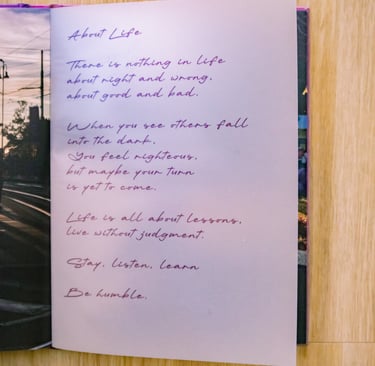 About Life
There is nothing in life
about right and wrong,
about good and bad.
When you see others fall
into the dark.
You feel righteous,
but maybe your turn
is yet to come.
Life is all about lessons,
live without judgment.
Stay, listen, learn
Be humble.